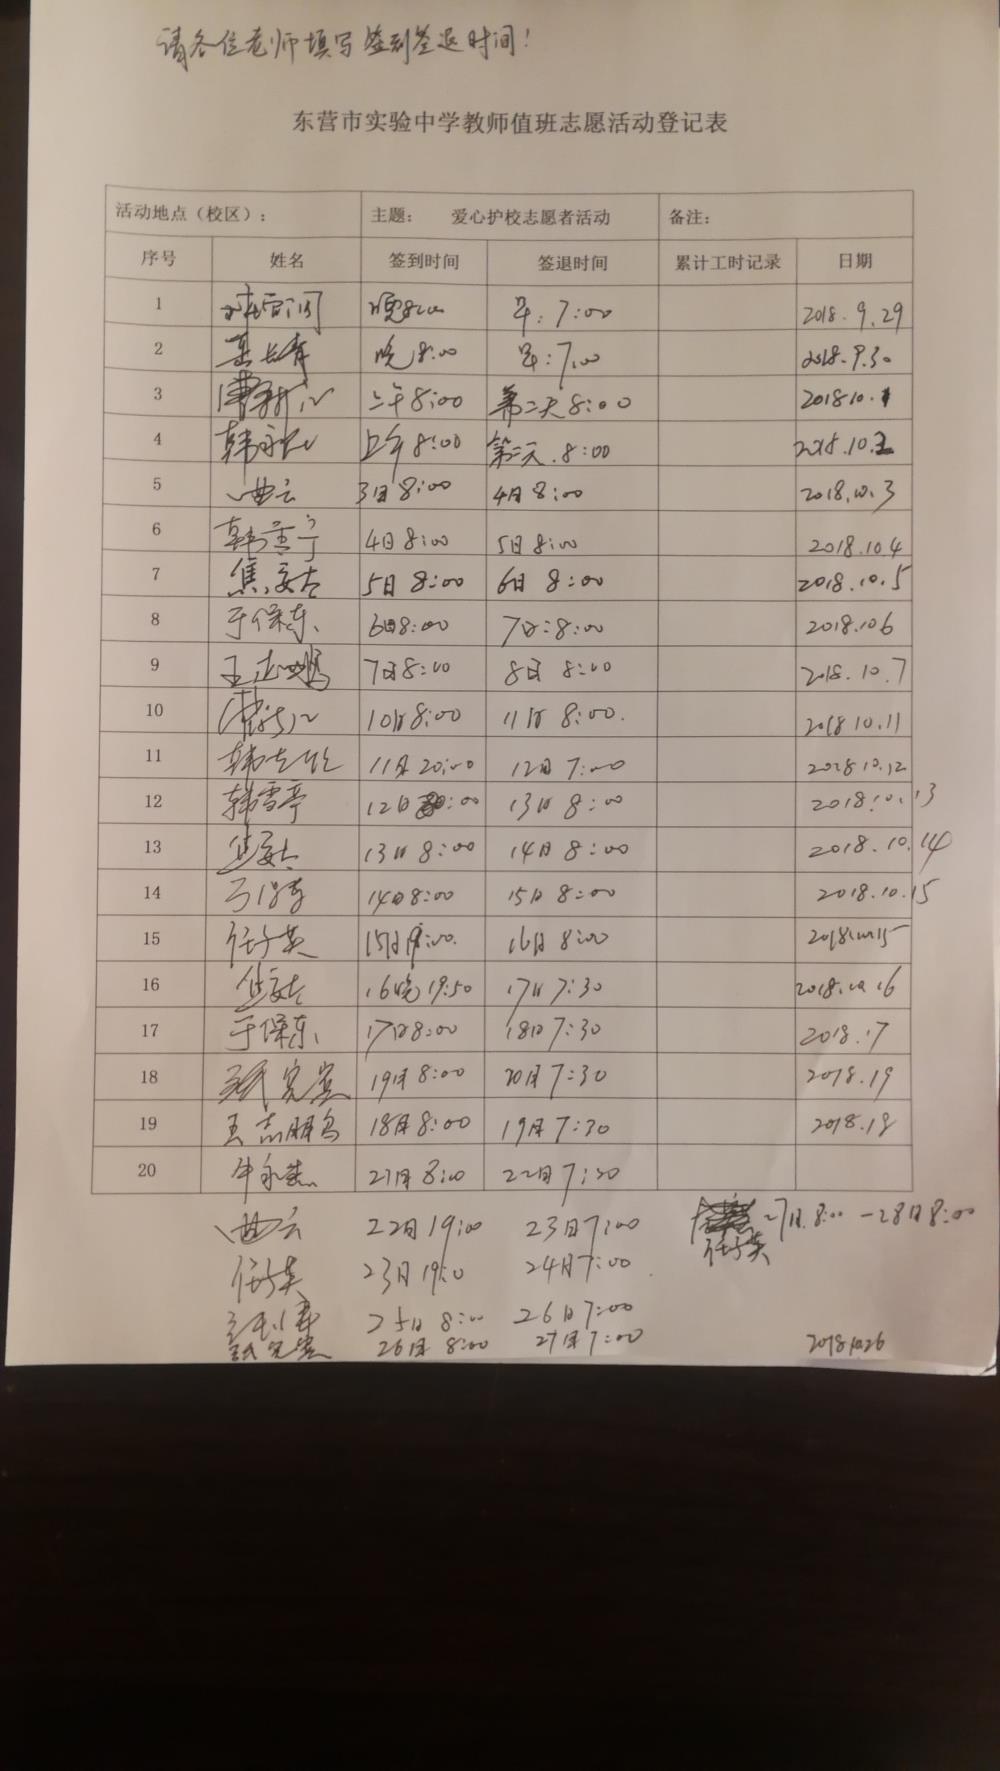 请各位老师填写签到签退时间!
东营市实验中学教师值班志愿活动登记表
活动地点（校区）： 主题： 爱心护校志愿者活动 备注：
序号 姓名 签到时间 签退时间 累计工时记录 日期
1 晚8:00 早:7:00 2018.9.29
2 晚8:00 早:7:00 2018.9.30
3 上午8:00 第二天8:00 201810.1
4 上午8:00 第二天.8:00 2018.10.2
5 曲云 3日8:00 4日8:00 2018.10.3
6 4日8:00 5日8:00 2018.10.4
7 5日8:00 6日8:00 2018.10.5
8 于保东 6日8:00 7日:8:00 2018.106
9 王志鹏 7日8:00 8日8:00 2018.10.7
10 10日8:00 11日8:00. 2018 10.11
11 11日20:00 12日7:00 2018.10.12
12 韩雪亭 12日 :00 13日8:00 2018.10.13
13 13日8:00 14日8:00 2018.10.14
14 14日8:00 15日8:00 2018.10.15
15 任子英 15日 :00. 16日8:00 2018.10.15
16 16晚19:50 17日7:30 2018.10.16
17 于保东 17日8:00 18日7:30 2018.17
18 19日8:00 20日7:30 2018.19
19 王志鹏 18日8:00 19日7:30 2018.18
20 21日8:00 22日7:30
曲云 22日19:00 23日7:00 27日.8:00-28日8:00
任子英
任子英 23日19:0 24日7:00
25日8:00 26日7:00
26日8:00 27日7:00 20181026